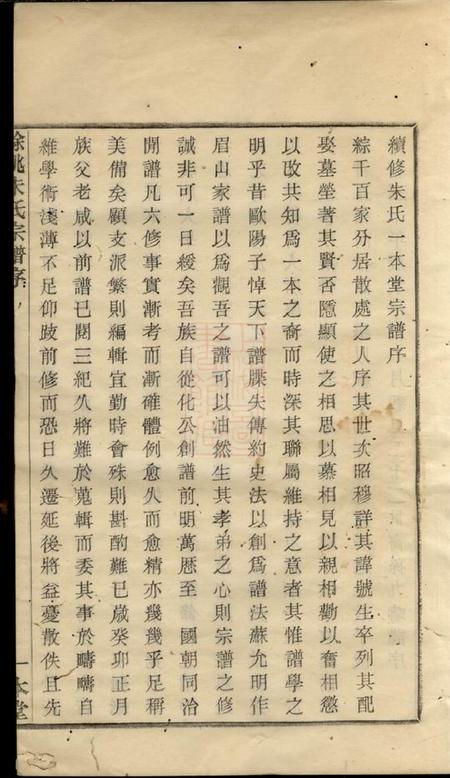 續修朱氏一本堂宗譜序
綜千百家分居散處之人序其世次昭穆詳其諱號生卒列其配
娶墓塋著其賢否隱顯使之相思以慕相見以親相勸以奮相懲
以改共知爲一本之裔而時深其聯屬維持之意者其惟譜學之
明乎昔歐陽子悼天下譜牒失傳約史法以創爲譜法蘇允明作
眉山家譜以爲觀吾之譜可以油然生其孝弟之心則宗譜之修
誠非可一日緩矣吾族自從化公創譜前明萬厯至 國朝同治
閒譜凡六修事實漸考而漸確體例愈久而愈精亦幾幾乎足稱
美備矣顧支派繁則編輯宜勤時會殊則斟酌難已歲癸卯正月
族父老咸以前譜已閱三紀久將難於蒐輯而委其事於疇疇自
維學術淺薄不足仰歧前修而恐日久遷延後將益憂散佚且先
餘姚朱氏宗譜序
一本堂